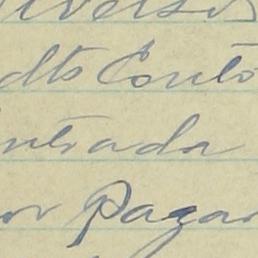 iversos
dts Conto
ntrada
or Pagar